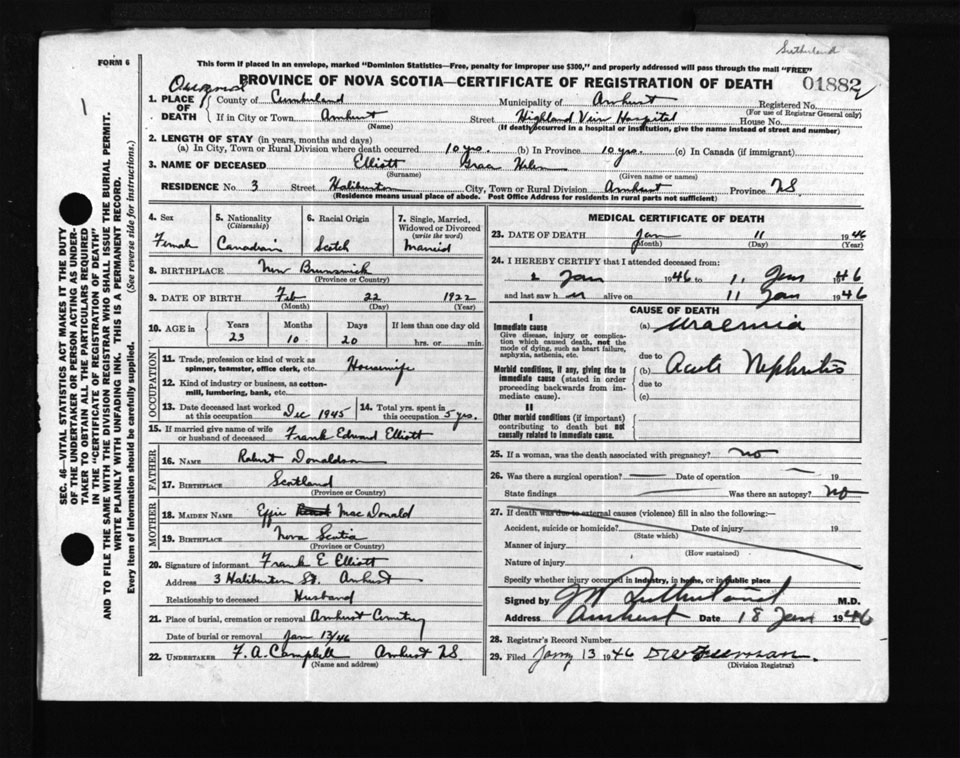 Sutherland
FORM 6
This form if placed in an envelope, marked "Dominion Statistics—Free, penalty for improper use $300," and properly addressed will pass through the mail "FREE"
PROVINCE OF NOVA SCOTIA—CERTIFICATE OF REGISTRATION OF DEATH 01882
1. PLACE OF DEATH County of Cumberland Municipality of Amherst Registered No.
(For use of Registrar General only)
If in City or Town Amherst Street Highland View Hospital House No.
(Name) (If death occurred in a hospital or institution, give the name instead of street and number)
2. LENGTH OF STAY (in years, months and days)
(a) In City, Town or Rural Division where death occurred 10 yrs. (b) In Province 10 yrs. (c) In Canada (if immigrant)
3. NAME OF DECEASED Elliott Grace Helen
(Surname) (Given name or names)
RESIDENCE No. 3 Street Haliburton City, Town or Rural Division Amherst Province NS
(Residence means usual place of abode. Post Office Address for residents in rural parts not sufficient)
4. Sex 5. Nationality (Citizenship) 6. Racial Origin 7. Single, Married, Widowed or Divorced (write the word)
Female Canadian Scotch Married
8. BIRTHPLACE New Brunswick
(Province or Country)
9. DATE OF BIRTH Feb 22 1922
(Month) (Day) (Year)
10. AGE in Years Months Days If less than one day old
23 10 20 hrs. or min.
OCCUPATION
11. Trade, profession or kind of work as spinner, teamster, office clerk, etc. Housewife
12. Kind of industry or business, as cotton-mill, lumbering, bank, etc.
13. Date deceased last worked at this occupation Dec 1945 14. Total yrs. spent in this occupation 5 yrs.
15. If married give name of wife or husband of deceased Frank Edward Elliott
FATHER
16. NAME Robert Donaldson
17. BIRTHPLACE Scotland
(Province or Country)
MOTHER
18. MAIDEN NAME Effie MacDonald
19. BIRTHPLACE Nova Scotia
(Province or Country)
20. Signature of informant Frank E Elliott
Address 3 Haliburton St. Amherst
Relationship to deceased Husband
21. Place of burial, cremation or removal Amherst Cemetery
Date of burial or removal Jan 13/46
22. UNDERTAKER F. A. Campbell Amherst NS
(Name and address)
MEDICAL CERTIFICATE OF DEATH
23. DATE OF DEATH Jan 11 1946
(Month) (Day) (Year)
24. I HEREBY CERTIFY that I attended deceased from:
Jan 1946 to Jan 1946
and last saw h er alive on 11 Jan 1946
CAUSE OF DEATH
I
Immediate cause (a) Uraemia
Give disease, injury or complication which caused death, not the mode of dying, such as heart failure, asphyxia, asthenia, etc.
due to
Morbid conditions, if any, giving rise to immediate cause (stated in order proceeding backwards from immediate cause). (b) Acute Nephritis
due to
(c)
II
Other morbid conditions (if important) contributing to death but not causally related to immediate cause.
25. If a woman, was the death associated with pregnancy? no
26. Was there a surgical operation? Date of operation 19
State findings Was there an autopsy? no
27. If death was due to external causes (violence) fill in also the following:—
Accident, suicide or homicide? Date of injury 19
(State which)
Manner of injury
(How sustained)
Nature of injury
Specify whether injury occurred in industry, in home, or in public place
Signed by J W Sutherland M.D.
Address Amherst Date 18 Jan 1946
28. Registrar's Record Number
29. Filed Jany 13 1946
(Division Registrar)
SEC. 46—VITAL STATISTICS ACT MAKES IT THE DUTY
OF THE UNDERTAKER OR PERSON ACTING AS UNDER-
TAKER TO OBTAIN ALL THE PARTICULARS REQUIRED
IN THE "CERTIFICATE OF REGISTRATION OF DEATH"
AND TO FILE THE SAME WITH THE DIVISION REGISTRAR WHO SHALL ISSUE THE BURIAL PERMIT.
WRITE PLAINLY WITH UNFADING INK. THIS IS A PERMANENT RECORD.
Every item of information should be carefully supplied. (See reverse side for instructions.)